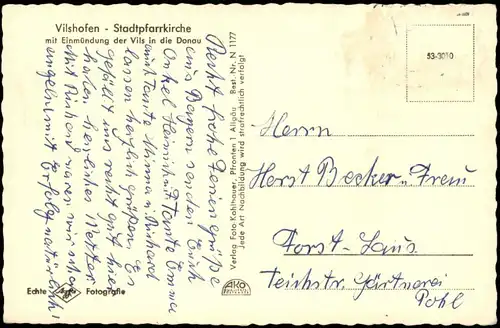 Vilshofen - Stadtpfarrkirche
mit Einmündung der Vils in die Donau
Recht frohe Feriengrüße
aus Bayern senden Euch
Onkel Heinrich u. Tante Emmi
auch Tante Minna u. Richard
lassen herzlich grüßen. Es
gefällt uns recht gut hier
haben herrliches Wetter.
Mit Richard waren wir schon
angeln mit Erfolg natürlich!
Echte Agfa Fotografie
Verlag Foto-Kohlbauer, Pfronten 1 Allgäu Best. Nr. N 1177
Jede Art Nachbildung wird strafrechtlich verfolgt
AKO
53-3010
Herrn
Horst Becker u. Frau
Forst-Laus.
Teichstr. Gärtnerei
Pohl